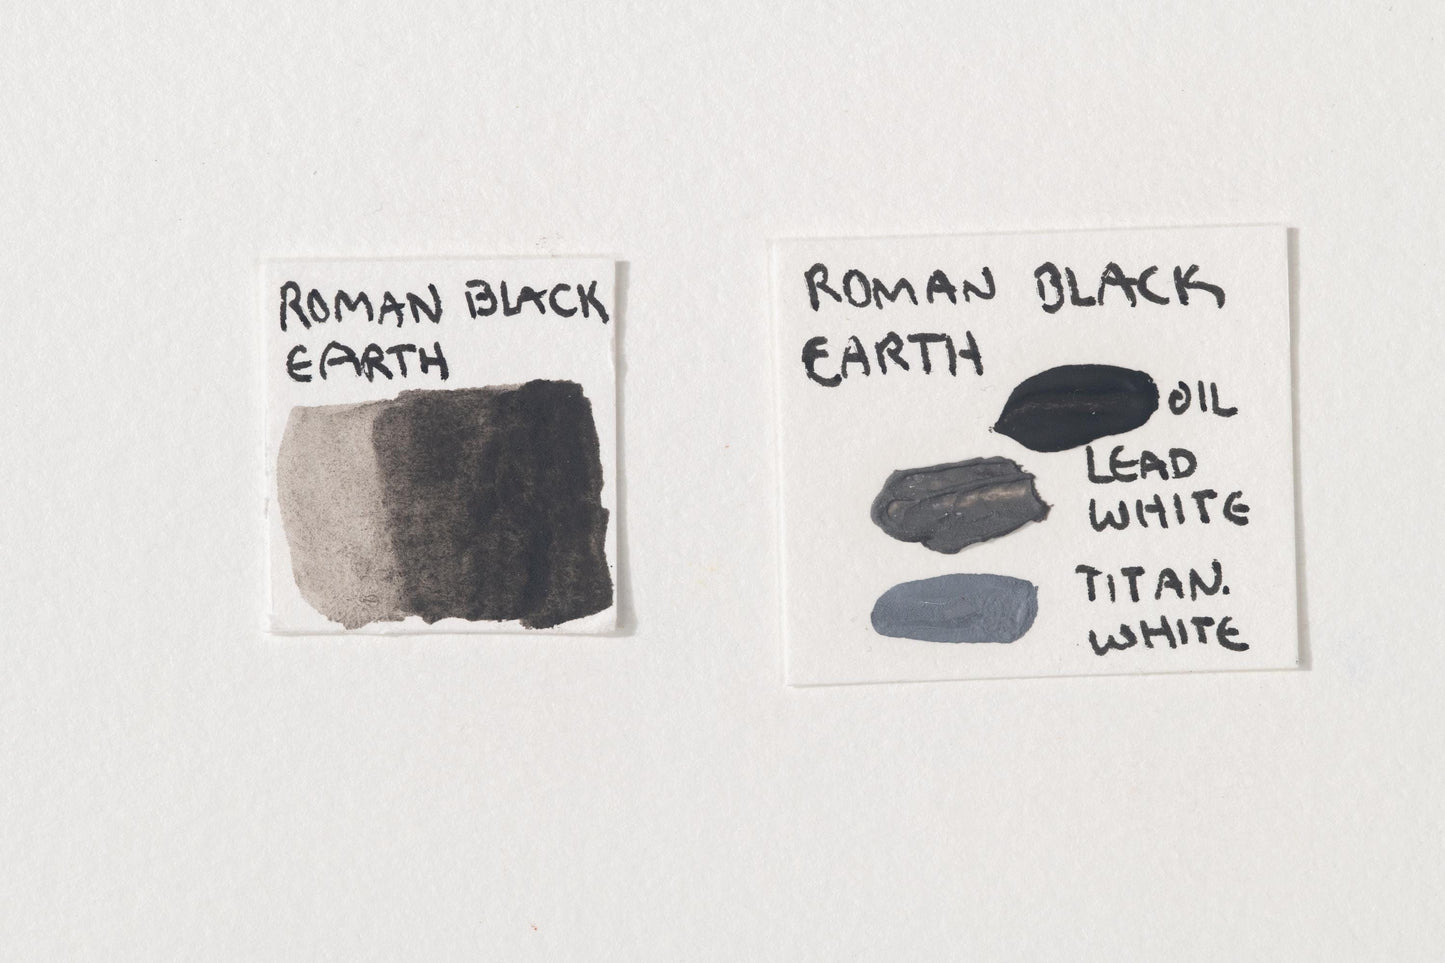 ROMAN BLACK
EARTH
ROMAN BLACK
EARTH
OIL
LEAD
WHITE
TITAN.
WHITE